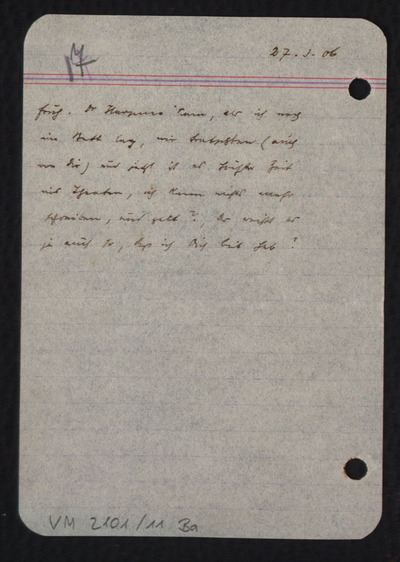 17
27. 3. 06
früh. Dr Kam, als ich noch
im Bett lag, wir tratschten (auch
von dir) und jetzt ist es höchste Zeit
ins Theater, ich kann nichts mehr
schreiben, und gelt?, Du weißt es
ja auch so, daß ich Dich lieb hab?
VM 2101/11 Ba